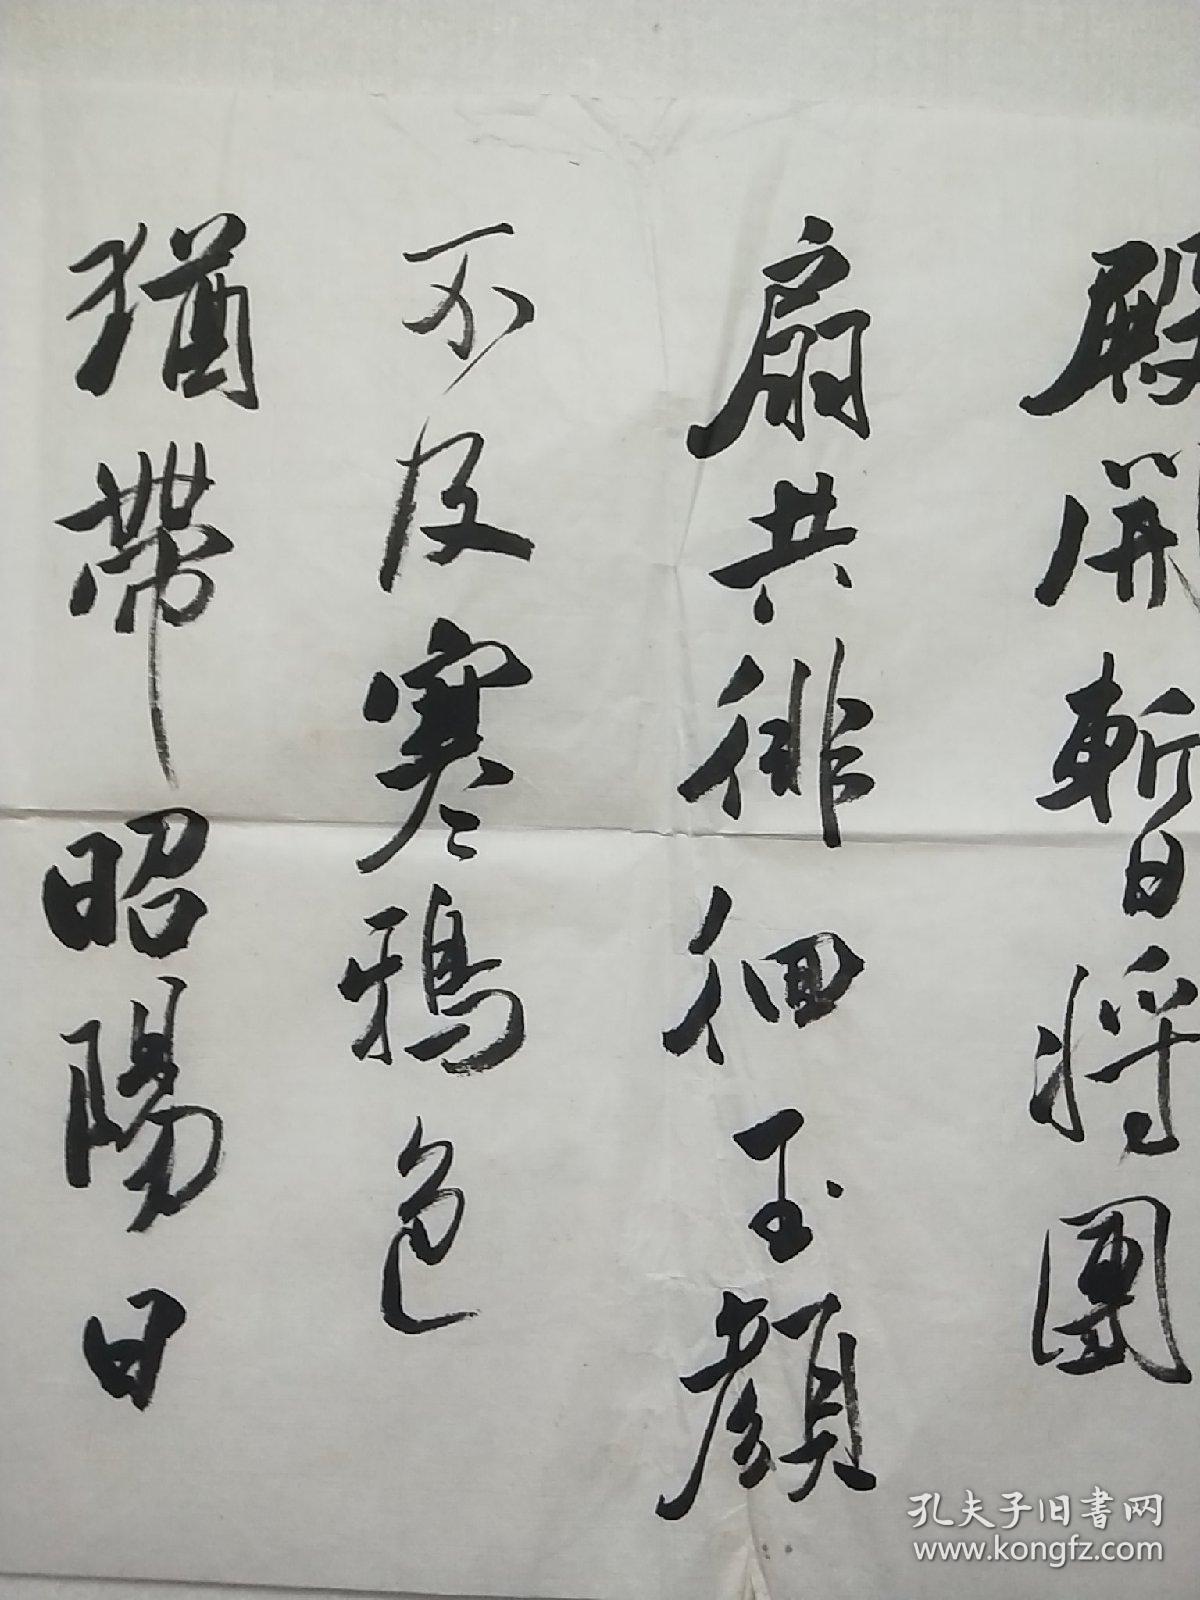 殿開暫將團
扇共徘徊玉顏
不及寒鴉色
猶帶昭陽日
孔夫子旧书网
www.kongfz.com